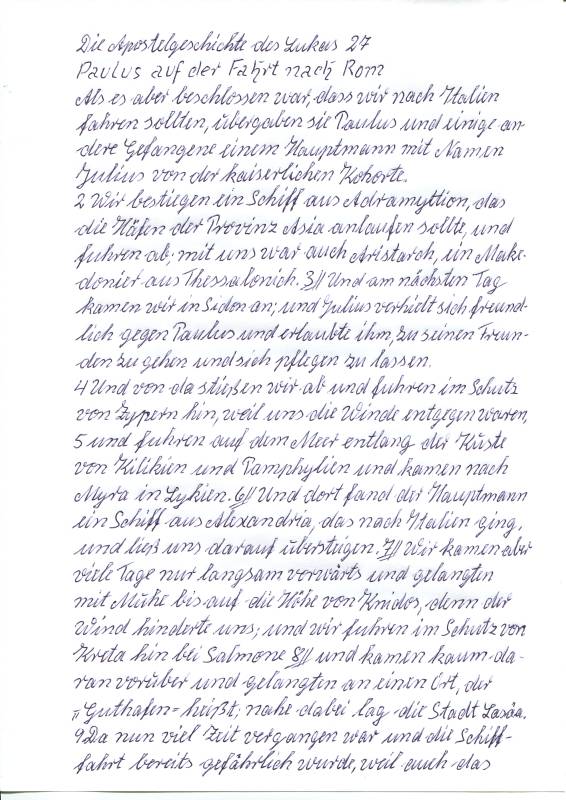 Die Apostelgeschichte des Lukas 27
Paulus auf der Fahrt nach Rom
Als es aber beschlossen war, dass wir nach Italien
fahren sollten, übergaben sie Paulus und einige an-
dere Gefangene einem Hauptmann mit Namen
Julius von der kaiserlichen Kohorte.
2 Wir bestiegen ein Schiff aus Adramyttion, das
die Häfen der Provinz Asia anlaufen sollte, und
fuhren ab; mit uns war auch Aristarch, ein Make-
donier aus Thessalonich. 3// Und am nächsten Tag
kamen wir in Sidon an; und Julius verhielt sich freund-
lich gegen Paulus und erlaubte ihm, zu seinen Freun-
den zu gehen und sich pflegen zu lassen.
4 Und von da stießen wir ab und fuhren im Schutz
von Zypern hin, weil uns die Winde entgegen waren,
5 und fuhren auf dem Meer entlang der Küste
von Kilikien und Pamphylien und kamen nach
Myra in Lykien. 6// Und dort fand der Hauptmann
ein Schiff aus Alexandria, das nach Italien ging,
und ließ uns darauf übersteigen. 7// Wir kamen aber
viele Tage nur langsam vorwärts und gelangten
mit Mühe bis auf die Höhe von Knidos, denn der
Wind hinderte uns; und wir fuhren im Schutz von
Kreta hin bei Salmone 8// und kamen kaum da-
ran vorüber und gelangten an einen Ort, der
"Guthafen" heißt; nahe dabei lag die Stadt Lasäa.
9 Da nun viel Zeit vergangen war und die Schiff-
fahrt bereits gefährlich wurde, weil auch das